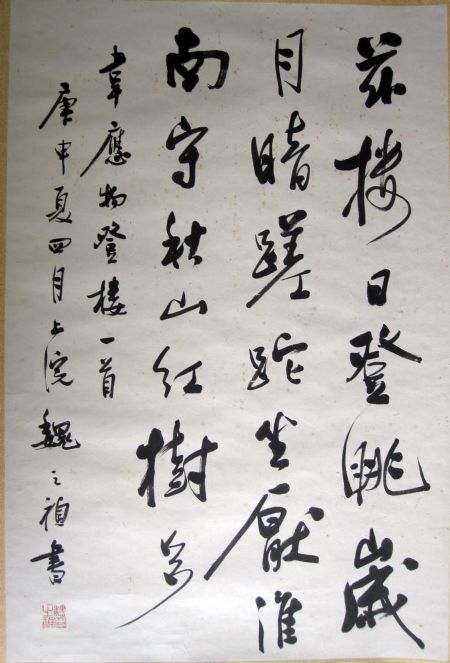 茲樓日登眺歲
月暗蹉跎坐厭淮
南守秋山紅樹多
韋應物登樓一首
庚申夏四月上浣魏之禎書